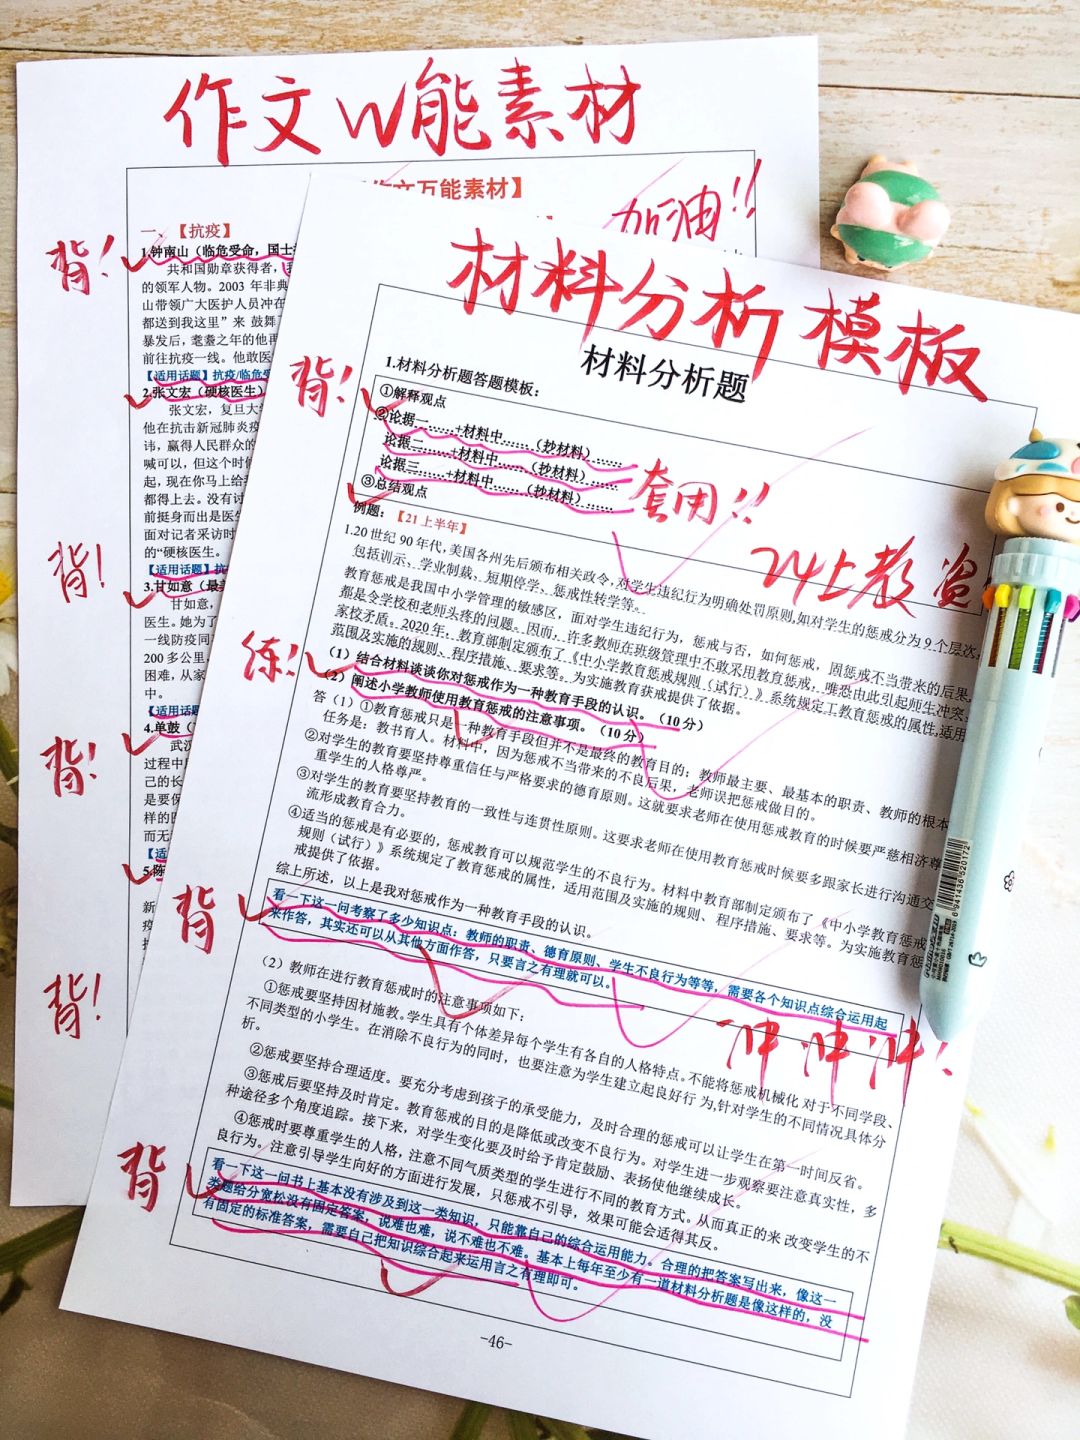 作文W能素材
作文万能素材】
加油!!
一、【抗疫】
背!
1.钟南山（临危受命，国士
共和国勋章获得者，
的领军人物。2003 年非典
山带领广大医护人员冲在
都送到我这里”来 鼓舞
暴发后，耄耋之年的他再
前往抗疫一线。他敢医
【适用话题】抗疫/临危受
2.张文宏（硬核医生）
张文宏，复旦大学
他在抗击新冠肺炎疫
讳，赢得人民群众的
喊可以，但这个时候
起，现在你马上给我
都得上去。没有讨
前挺身而出是医生
面对记者采访时
的“硬核医生。
背!
【适用话题】抗
3.甘如意（最美
甘如意，
医生。她为了
一线防疫同
200 多公里，
困难，从家
中。
【适用话题
背!
4.单鼓（
武汉
过程中
己的长
是要保
样的
而无
【适
5.陈
新
疫
背!
材料分析模板
材料分析题
背!
1.材料分析题答题模板：
①解释观点
②论据一……+材料中……（抄材料）……
论据二……+材料中……（抄材料）……
论据三……+材料中……（抄材料）……
③总结观点
套用!!
例题：【21 上半年】
24上教资
1.20 世纪 90 年代，美国各州先后颁布相关政令，对学生违纪行为明确处罚原则,如对学生的惩戒分为 9 个层次，
包括训示、学业制裁、短期停学、惩戒性转学等。
教育惩戒是我国中小学管理的敏感区，面对学生违纪行为，惩戒与否，如何惩戒，固惩戒不当带来的后果，
都是令学校和老师头疼的问题。因而，许多教师在班级管理中不敢采用教育惩戒，唯恐由此引起师生冲突，
家校矛盾。2020年，教育部制定颁布了《中小学教育惩戒规则（试行）》系统规定工教育惩戒的属性,适用
范围及实施的规则、程序措施、要求等。为实施教育获戒提供了依据。
练!
（1）结合材料谈谈你对惩戒作为一种教育手段的认识。（10 分）
（2）阐述小学教师使用教育惩戒的注意事项。（10 分）
答（1）①教育惩戒只是一种教育手段但并不是最终的教育目的；教师最主要、最基本的职责、教师的根本
任务是：教书育人。材料中，因为惩戒不当带来的不良后果，老师误把惩戒做目的。
②对学生的教育要坚持尊重信任与严格要求的德育原则。这就要求老师在使用惩戒教育的时候要严慈相济尊
重学生的人格尊严。
③对学生的教育要坚持教育的一致性与连贯性原则。这要求老师在使用教育惩戒时候要多跟家长进行沟通交
流形成教育合力。
④适当的惩戒是有必要的，惩戒教育可以规范学生的不良行为。材料中教育部制定颁布了《中小学教育惩戒
规则（试行）》系统规定了教育惩戒的属性，适用范围及实施的规则、程序措施、要求等。为实施教育惩
戒提供了依据。
综上所述，以上是我对惩戒作为一种教育手段的认识。
背
看一下这一问考察了多少知识点：教师的职责、德育原则、学生不良行为等等，需要各个知识点综合运用起
来作答，其实还可以从其他方面作答，只要言之有理就可以。
（2）教师在进行教育惩戒时的注意事项如下：
冲冲冲!
①惩戒要坚持因材施教。学生具有个体差异每个学生有各自的人格特点。不能将惩戒机械化 对于不同学段、
不同类型的小学生。在消除不良行为的同时，也要注意为学生建立起良好行 为,针对学生的不同情况具体分
析。
②惩戒要坚持合理适度。要充分考虑到孩子的承受能力，及时合理的惩戒可以让学生在第一时间反省。
③惩戒后要坚持及时肯定。教育惩戒的目的是降低或改变不良行为。对学生进一步观察要注意真实性，多
种途径多个角度追踪。接下来，对学生变化要及时给予肯定鼓励、表扬使他继续成长。
④惩戒时要尊重学生的人格，注意不同气质类型的学生进行不同的教育方式。从而真正的来 改变学生的不
良行为。注意引导学生向好的方面进行发展，只惩戒不引导，效果可能会适得其反。
背
看一下这一问书上基本没有涉及到这一类知识，只能靠自己的综合运用能力。合理的把答案写出来，像这一
类题给分宽松没有固定答案，说难也难，说不难也不难。基本上每年至少有一道材料分析题是像这样的，没
有固定的标准答案，需要自己把知识综合起来运用言之有理即可。
-46-
6941438520172